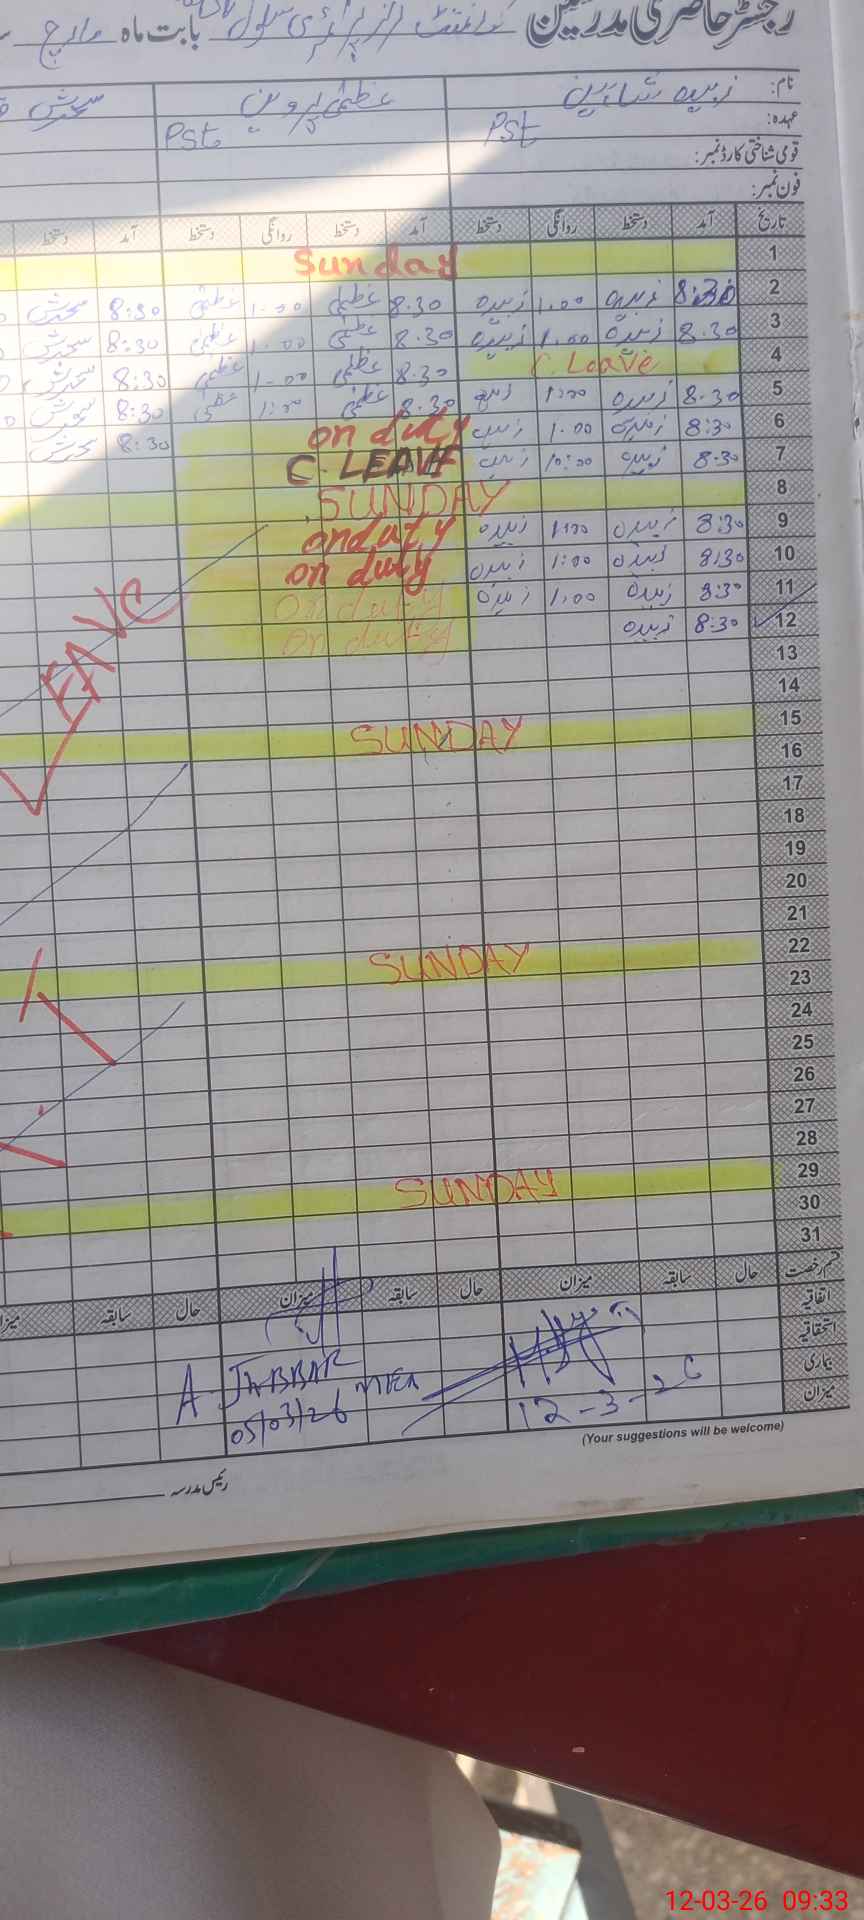 رجسٹر حاضری مدرسین گورنمنٹ گرلز پرائمری سکول بابت ماہ مارچ
نام: زبیدہ شاہین عظمیٰ پروین سحرش
عہدہ: PST PST
قومی شناختی کارڈ نمبر:
فون نمبر:
تاریخ آمد دستخط روانگی دستخط آمد دستخط روانگی دستخط آمد دستخط
1 Sunday
2 8:30 زبیدہ 1.00 زبیدہ 8.30 عظمیٰ 1.00 عظمیٰ 8:30 سحرش
3 8.30 زبیدہ 1.00 زبیدہ 8.30 عظمیٰ 1.00 عظمیٰ 8:30 سحرش
4 C. Leave 8.30 عظمیٰ 1-00 عظمیٰ 8:30 سحرش
5 8.30 زبیدہ 1:00 زبیدہ 8.30 عظمیٰ 1:00 عظمیٰ 8:30 سحرش
6 8:30 زبیدہ 1.00 زبیدہ on duty 8:30 سحرش
7 8.30 زبیدہ 12:00 زبیدہ C. LEAVE
8 SUNDAY
9 8:30 زبیدہ 1:00 زبیدہ on duty
10 8:30 زبیدہ 1:00 زبیدہ on duty
11 8:30 زبیدہ 1:00 زبیدہ On duty
12 8:30 زبیدہ On duty
LEAVE
13
14
15 SUNDAY
16
17
18
19
20
21
22 SUNDAY
23
24
25
26
27
28
29 SUNDAY
30
31
قسم رخصت حال سابقہ میزان حال سابقہ میزان حال سابقہ میزان
اتفاقیہ
استحقاقیہ
بیماری
میزان
A. JABBAR MEA
05/03/26
12-3-26
(Your suggestions will be welcome)
رئیس مدرسہ
12-03-26 09:33